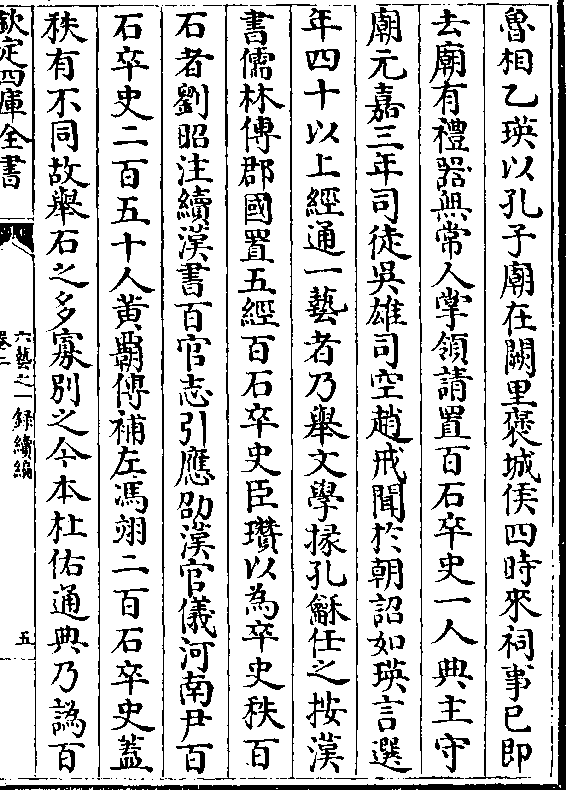 魯相乙瑛以孔子廟在闕里褒城侯四時來祠事已即
去廟有禮器無常人掌領請置百石卒史一人典主守
廟元嘉三年司徒吳雄司空趙戒聞於朝詔如瑛言選
年四十以上經通一藝者乃舉文學掾孔龢任之按漢
書儒林傳郡國置五經百石卒史臣瓚以為卒史秩百
石者劉昭注續漢書百官志引應劭漢官儀河南尹百
石卒史二百五十人黃霸傳補左馮翊二百石卒史蓋
秩有不同故舉石之多寡別之今本杜佑通典乃譌百
欽定四庫全書
六藝之一録續編
卷二
五